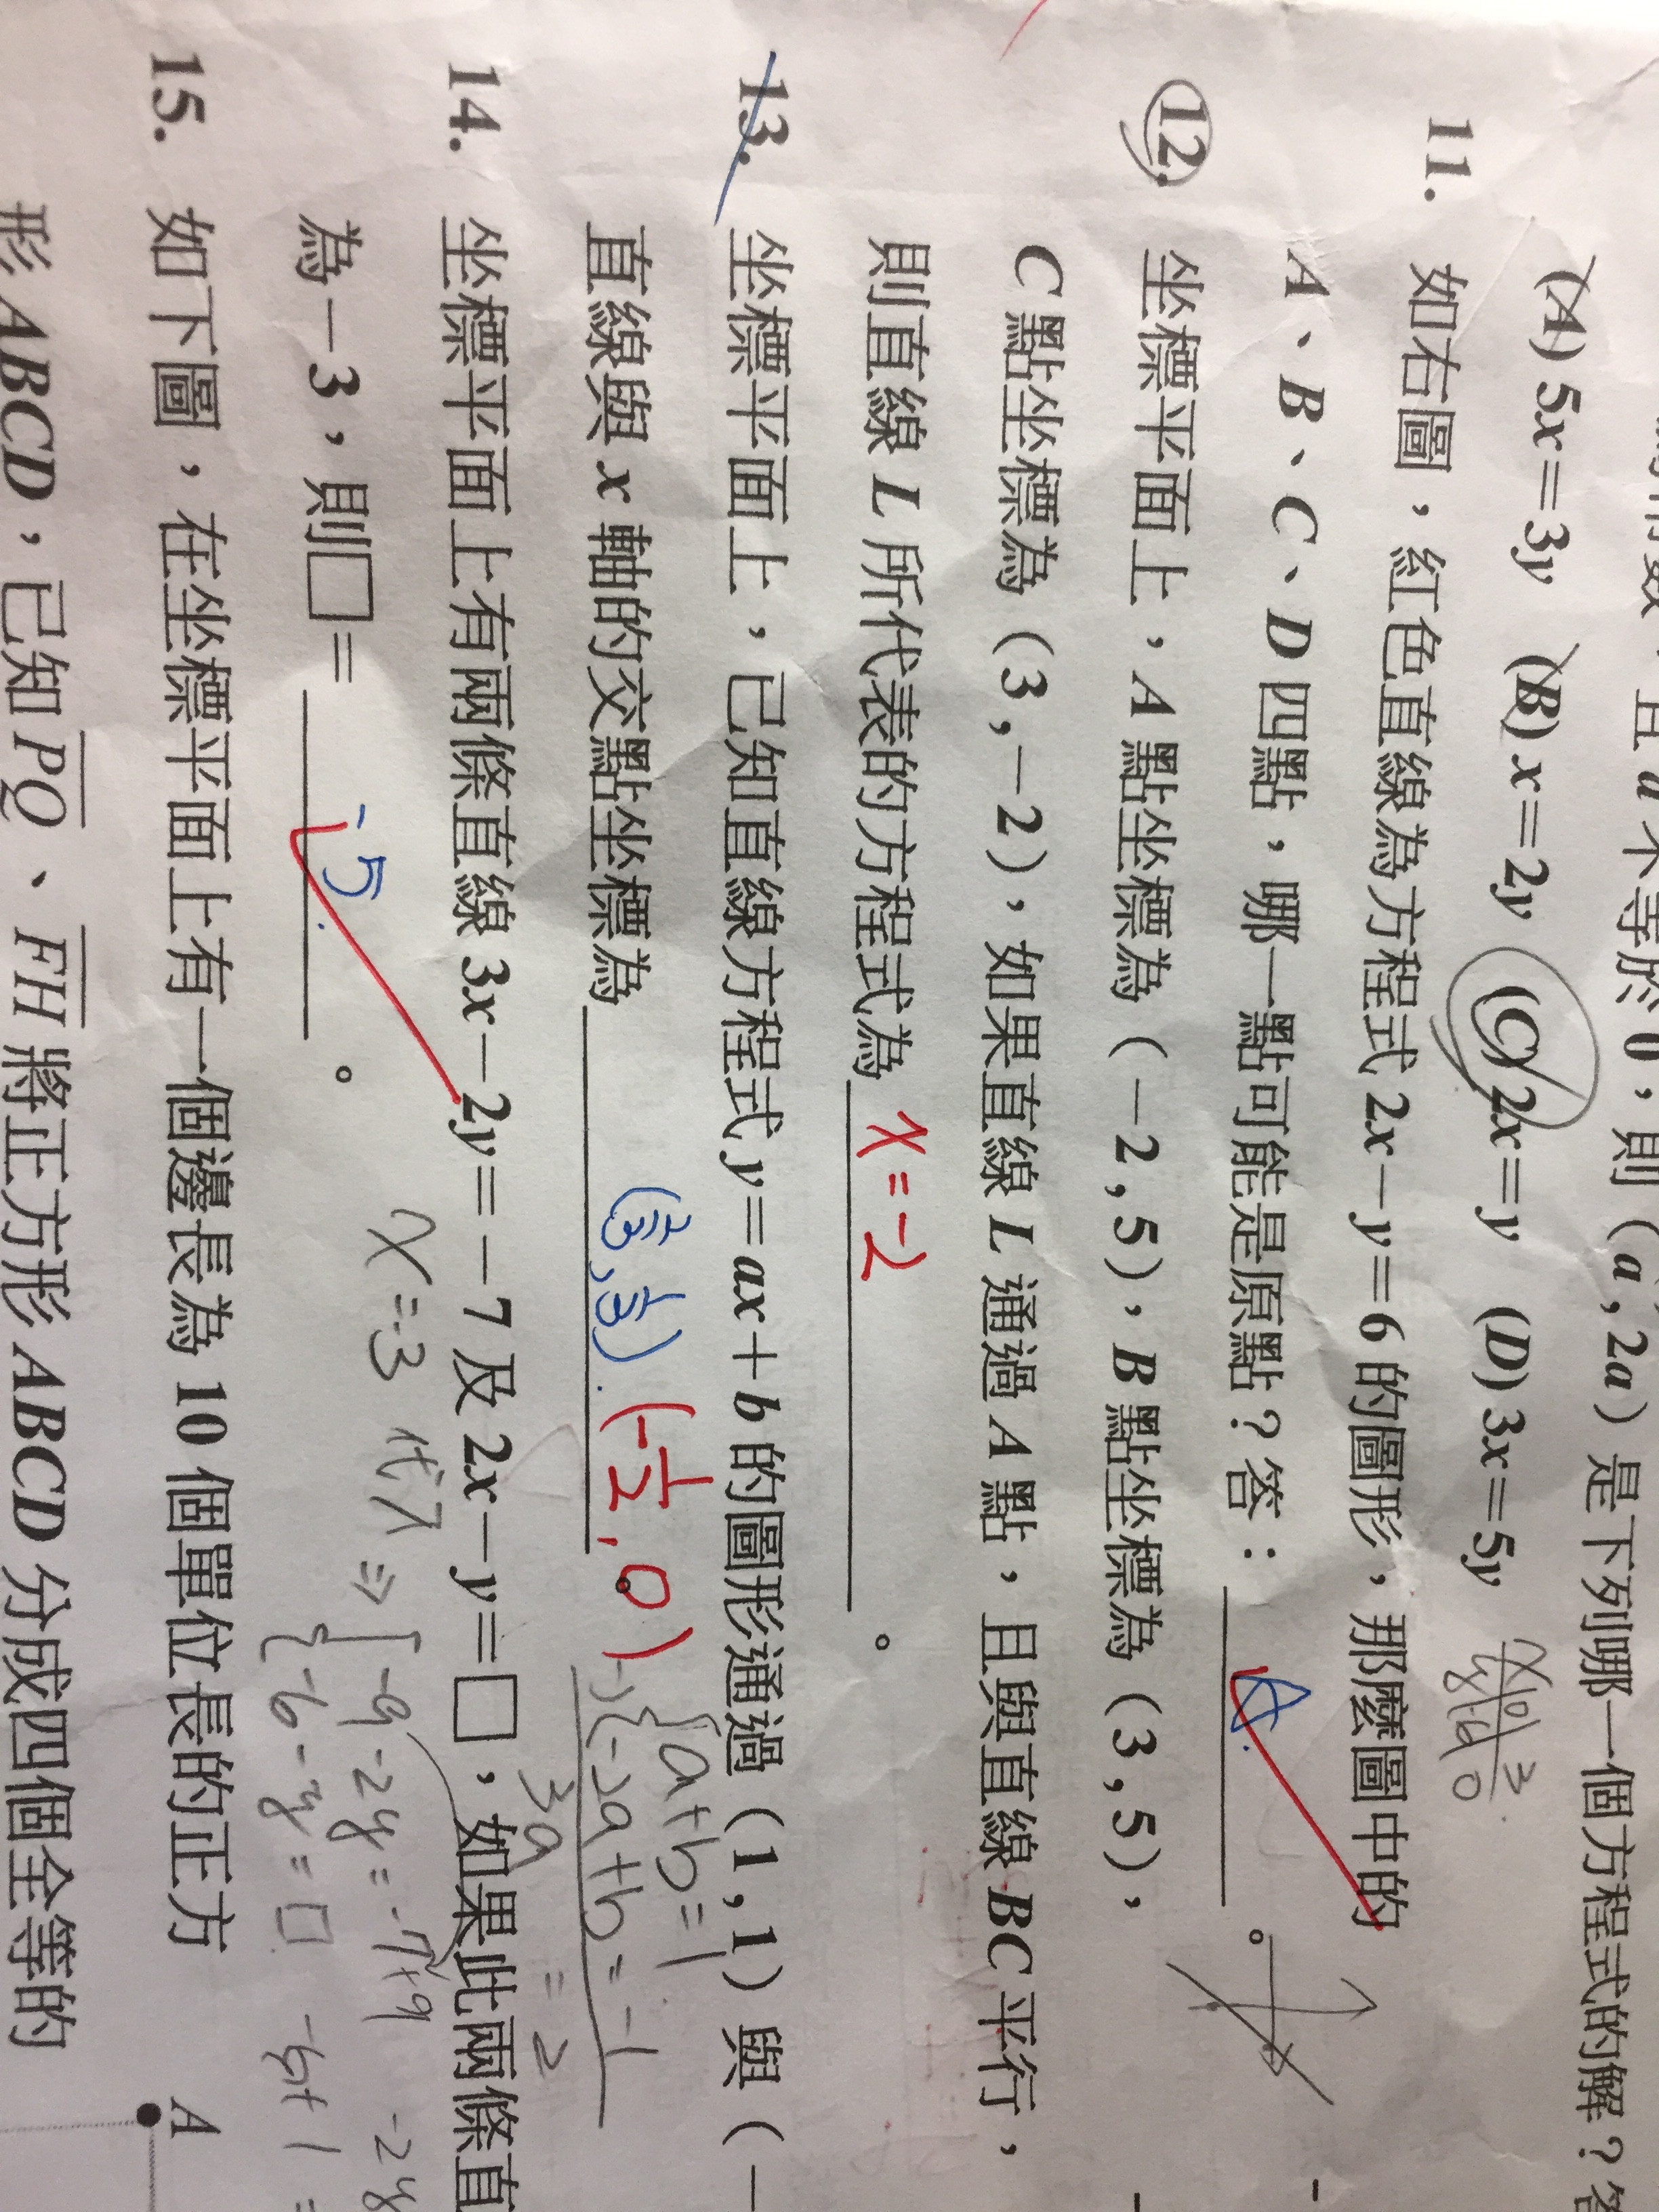 不等於 0，則（a , 2a）是下列哪一個方程式的解？答
(A) 5x＝3y (B) x＝2y (C) 2x＝y (D) 3x＝5y
x 0 3
y -6 0
11. 如右圖，紅色直線為方程式 2x－y＝6 的圖形，那麼圖中的
A、B、C、D 四點，哪一點可能是原點？答：A.。
12. 坐標平面上，A 點坐標為（－2 , 5），B 點坐標為（3 , 5），
C 點坐標為（3 ,－2），如果直線 L 通過 A 點，且與直線 BC 平行，
則直線 L 所代表的方程式為 x=-2 。
13. 坐標平面上，已知直線方程式 y＝ax＋b 的圖形通過（1 , 1）與（－
直線與 x 軸的交點坐標為 (2/3, 1/3). (-1/2, 0)
a+b=1
-) -2a+b=-1
3a =2
14. 坐標平面上有兩條直線 3x－2y＝－7 及 2x－y＝□，如果此兩條直
為－3，則□＝ -5. 。
x=-3 代入 ⇒ -9-2y=-7+9 -2y
-6-y=□
15. 如下圖，在坐標平面上有一個邊長為 10 個單位長的正方
A
形 ABCD，已知 PQ、FH 將正方形 ABCD 分成四個全等的